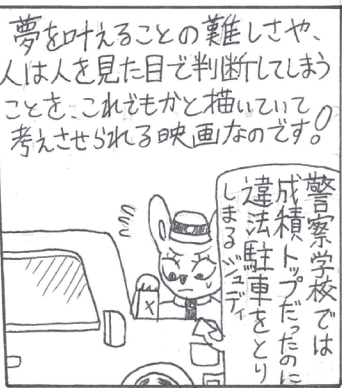 夢を叶えることの難しさや、
人は人を見た目で判断してしまう
ことを、これでもかと描いていて
考えさせられる映画なのです!
警察学校では
成績トップだったのに
違法駐車をとり
しまるジュディ
x